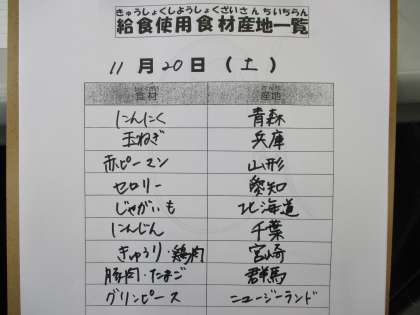 きゅうしょくしようしょくざいさんちいちらん
給食使用食材産地一覧
11月20日(土)
食材 産地
にんにく 青森
玉ねぎ 兵庫
赤ピーマン 山形
セロリー 愛知
じゃがいも 北海道
にんじん 千葉
きゅうり・鶏肉 宮崎
豚肉・たまご 群馬
グリンピース ニュージーランド